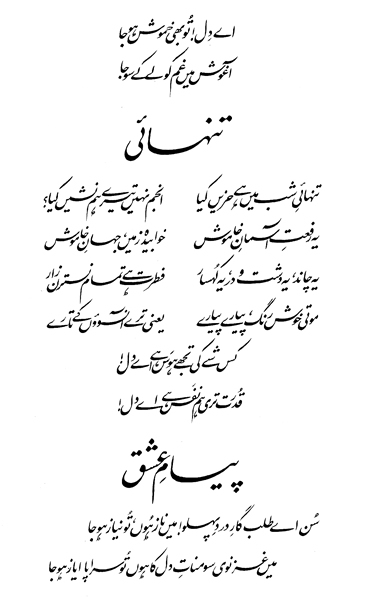 اے دِل! تُو بھی خموش ہو جا
آغوش میں غم کو لے کے سو جا
تنہائی
تنہائیِ شب میں ہے حزیں کیا انجم نہیں تیرے ہم نشیں کیا؟
یہ رفعتِ آسمانِ خاموش خوابیدہ زمیں، جہانِ خاموش
یہ چاند، یہ دشت و در، یہ کُہسار فطرت ہے تمام نسترن زار
موتی خوش رنگ، پیارے پیارے یعنی ترے آنسوؤں کے تارے
کس شے کی تجھے ہوس ہے اے دل!
قُدرت تری ہم نفَس ہے اے دل!
پیامِ عشق
سُن اے طلب گارِ دردِ پہلو! میں ناز ہوں، تُو نیاز ہو جا
میں غزنوی سومناتِ دل کا ہوں تُو سراپا ایاز ہو جا